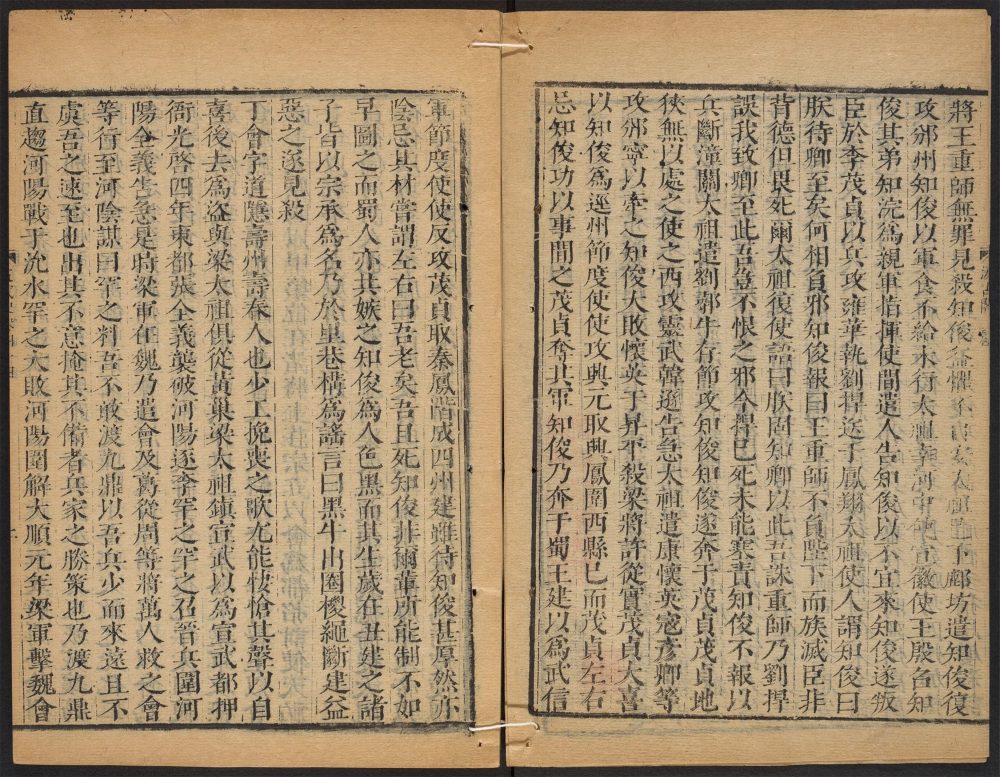 將王重師無罪見殺知俊益懼不自安太祖已下鄜坊遣知俊復
攻邠州知俊以軍食不給未行太祖幸河中使宣徽使王殷召知
俊其弟知浣爲親軍指揮使間遣人告知俊以不宜來知俊遂叛
臣於李茂貞以兵攻雍華執劉捍送于鳳翔太祖使人謂知俊曰
朕待卿至矣何相負邪知俊報曰王重師不負陛下而族滅臣非
背德但畏死爾太祖復使語曰朕固知卿以此吾誅重師乃劉捍
誤我致卿至此吾豈不恨之邪今捍已死未能塞責知俊不報以
兵斷潼關太祖遣劉鄩牛存節攻知俊知俊遂奔于茂貞茂貞地
狹無以處之使之西攻靈武韓遜告急太祖遣康懷英寇彥卿等
攻邠寧以牽之知俊大敗懷英于昇平殺梁將許從實茂貞大喜
以知俊爲涇州節度使使攻興元取興鳳圍西縣已而茂貞左右
忌知俊功以事間之茂貞奪其軍知俊乃奔于蜀王建以爲武信
軍節度使使反攻茂貞取秦鳳階成四州建雖待知俊甚厚然亦
陰忌其材嘗謂左右曰吾老矣吾且死知俊非爾輩所能制不如
早圖之而蜀人亦共嫉之知俊爲人色黑而其生歲在丑建之諸
子皆以宗承爲名乃於里巷構爲謠言曰黑牛出圈椶繩斷建益
惡之遂見殺
丁會字道隱壽州壽春人也少工挽喪之歌尤能悽愴其聲以自
喜後去爲盜與梁太祖俱從黃巢梁太祖鎮宣武以爲宣武都押
衙光啓四年東都張全義襲破河陽逐李罕之罕之召晉兵圍河
陽全義告急是時梁軍在魏乃遣會及葛從周等將萬人救之會
等行至河陰謀曰罕之料吾不敢渡九鼎以吾兵少而來遠且不
虞吾之速至也出其不意掩其不備者兵家之勝策也乃渡九鼎
直趨河陽戰于沇水罕之大敗河陽圍解大順元年梁軍擊魏會